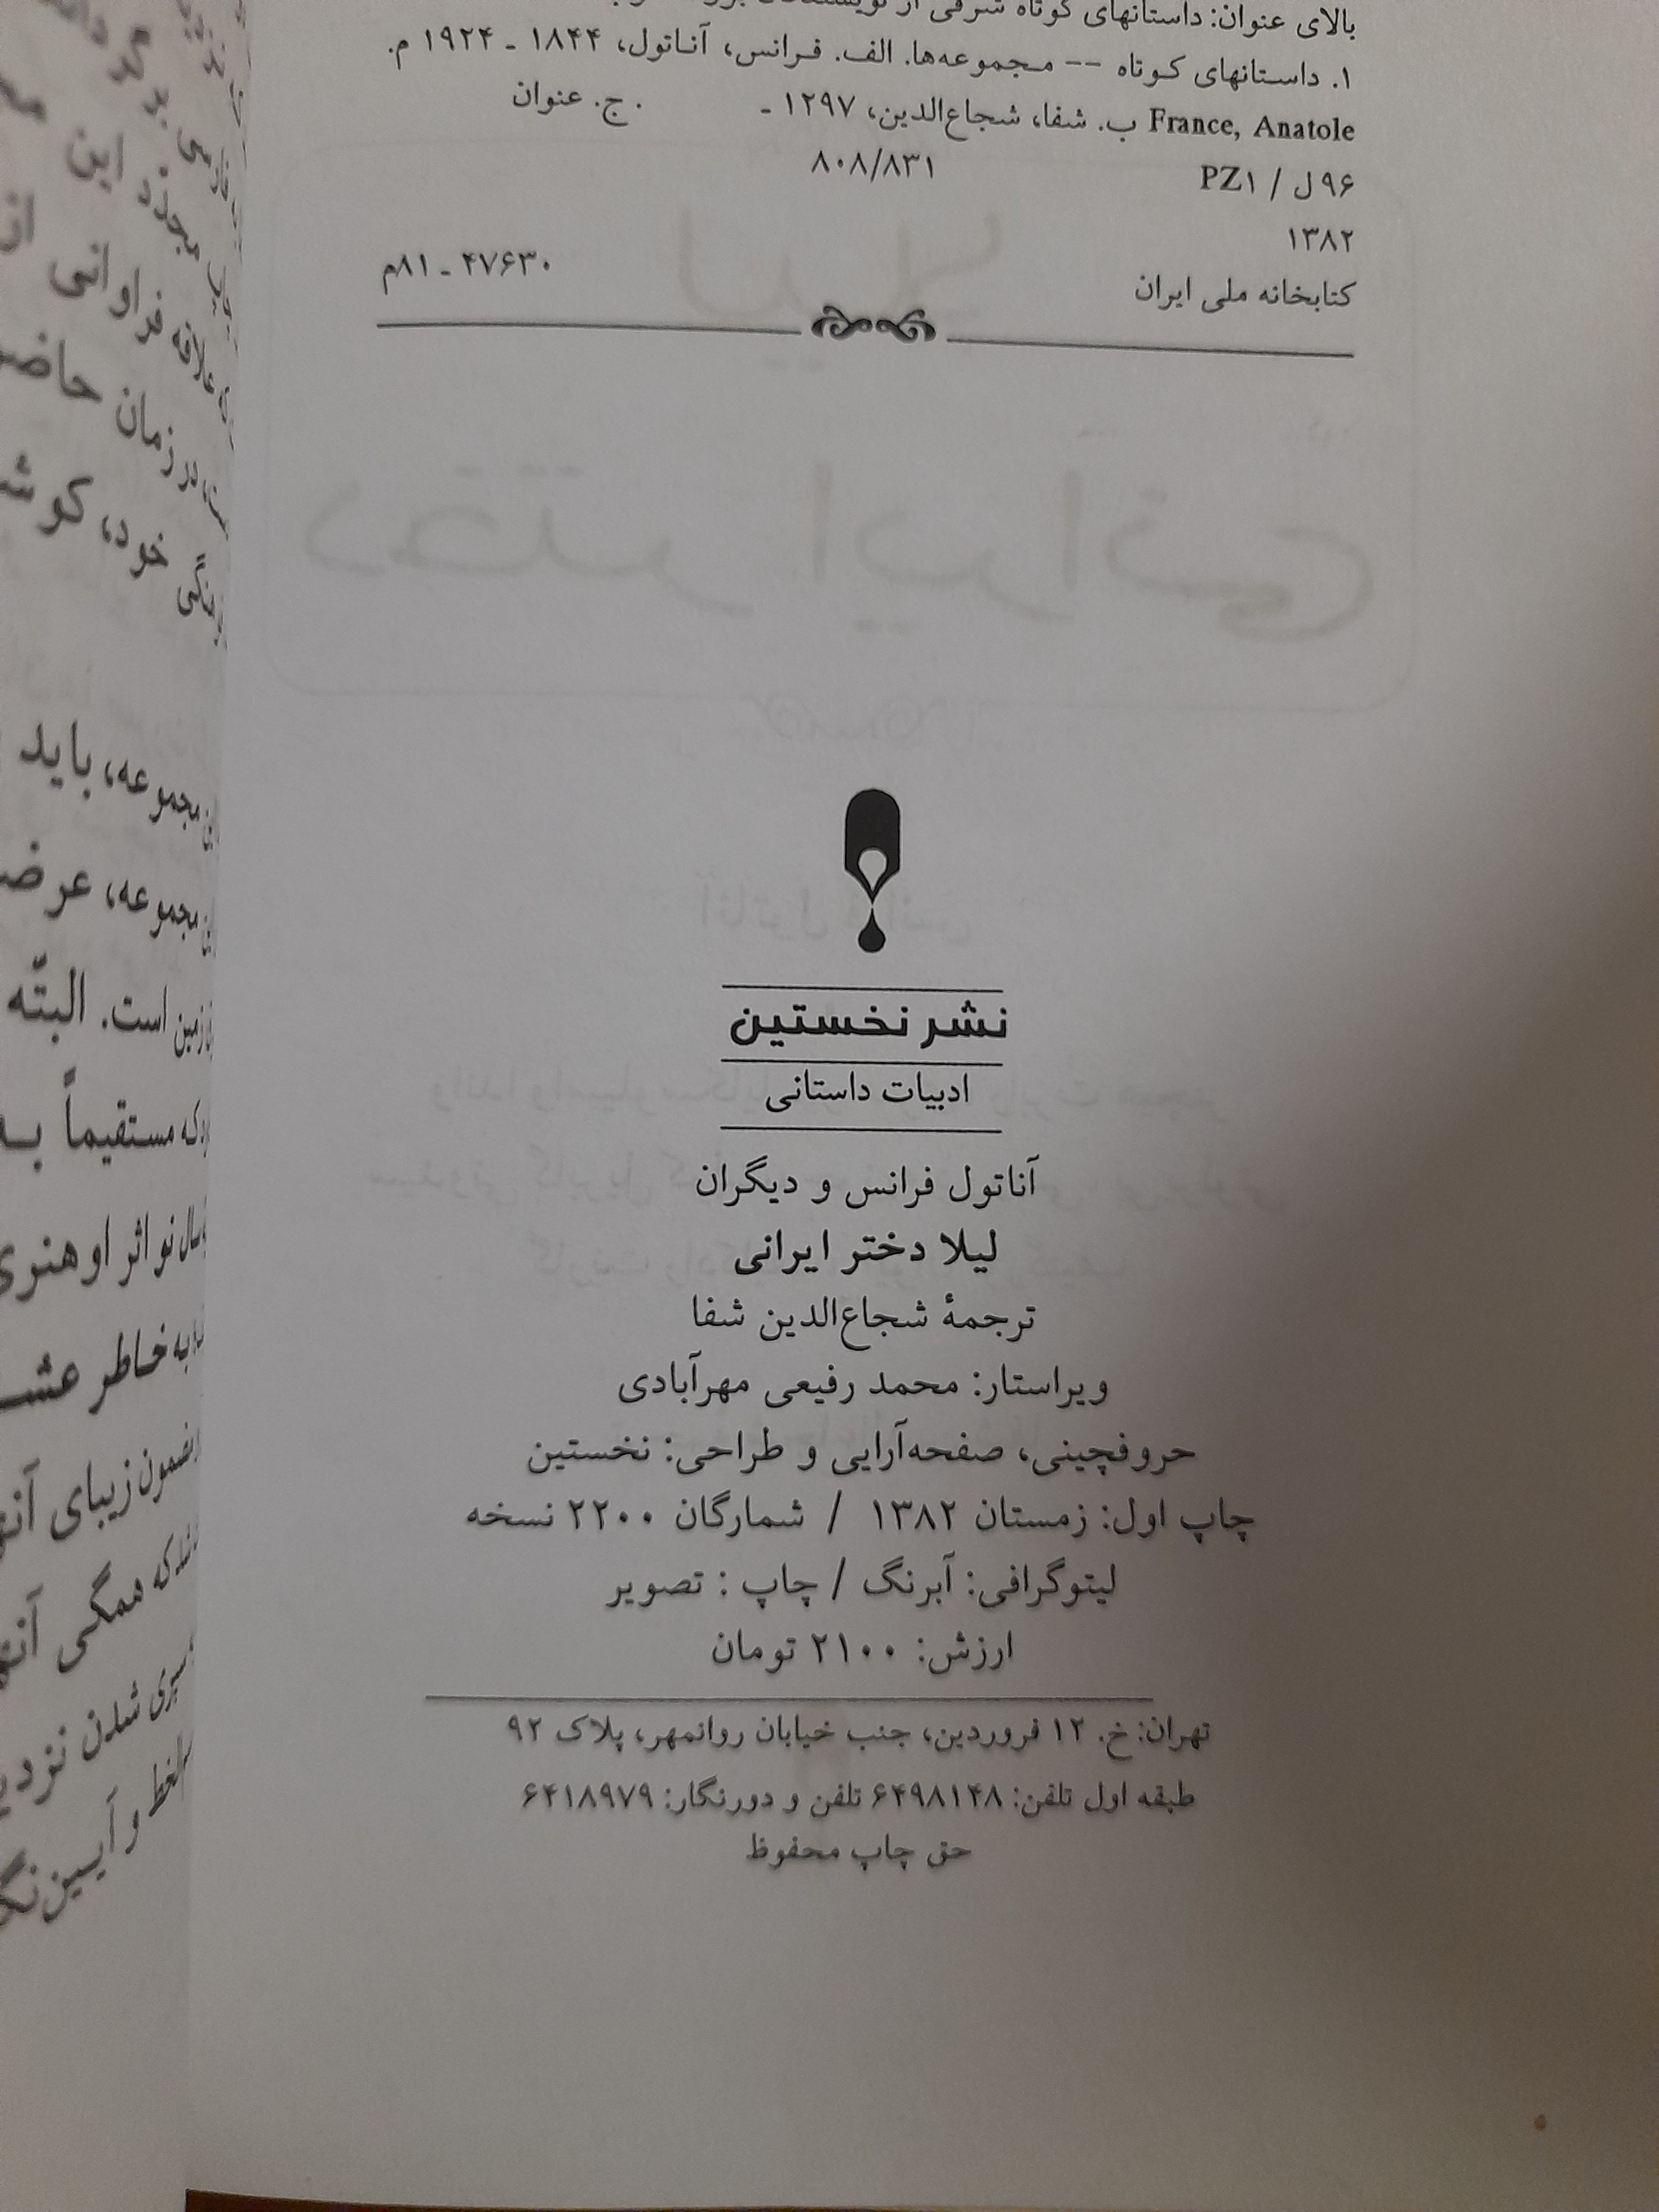 بالای عنوان: داستانهای کوتاه شرقی از
۱. داستانهای کوتاه -- مجموعه‌ها. الف. فرانس، آناتول، ۱۸۴۴ ـ ۱۹۲۴ م.
France, Anatole ب. شفا، شجاع‌الدین، ۱۲۹۷ ـ . ج. عنوان
۹۶ل / PZ۱ ۸۰۸/۸۳۱
۱۳۸۲
کتابخانه ملی ایران ۴۷۶۳۰ ـ ۸۱م
نشر نخستین
ادبیات داستانی
آناتول فرانس و دیگران
لیلا دختر ایرانی
ترجمهٔ شجاع‌الدین شفا
ویراستار: محمد رفیعی مهرآبادی
حروفچینی، صفحه‌آرایی و طراحی: نخستین
چاپ اول: زمستان ۱۳۸۲ / شمارگان ۲۲۰۰ نسخه
لیتوگرافی: آبرنگ / چاپ : تصویر
ارزش: ۲۱۰۰ تومان
تهران: خ. ۱۲ فروردین، جنب خیابان روانمهر، پلاک ۹۲
طبقه اول تلفن: ۶۴۹۸۱۴۸ تلفن و دورنگار: ۶۴۱۸۹۷۹
حق چاپ محفوظ
این
علاقه فراوانی
در زمان
خود،
مجموعه، باید
مجموعه،
زمین است. البتّه
که مستقیماً به
سال نو اثر او هنری
به خاطر
مضمون زیبای
که همگی
سپری شدن